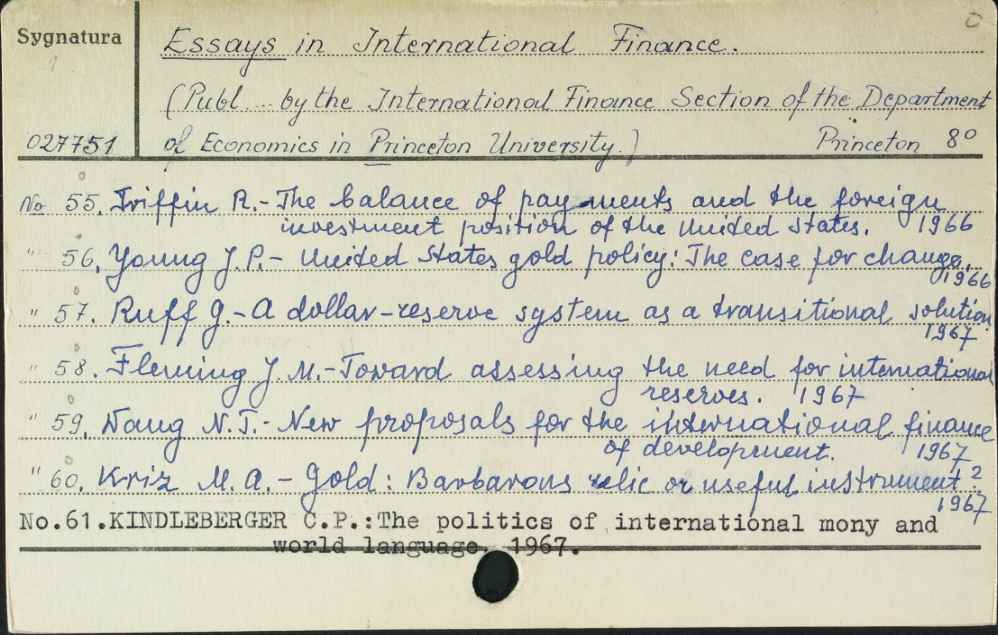 Sygnatura
Essays in International Finance.
(Publ. .. by the International Finance Section of the Department
027751 of Economics in Princeton University.) Princeton 8°
No 55. Triffin R.- The balance of payments and the foreign
investment position of the United States. 1966
" 56. Young J.P.- United States gold policy: The case for change.
1966
" 57. Ruff G.- A dollar-reserve system as a transitional solution
1967
" 58. Fleming J.M.- Toward assessing the need for international
reserves. 1967
" 59. Wang N.T.- New proposals for the international finance
of development. 1967
" 60. Kriz M.A.- Gold: Barbarous relic or useful instrument?
1967
No.61.KINDLEBERGER C.P.:The politics of international mony and
world language. 1967.